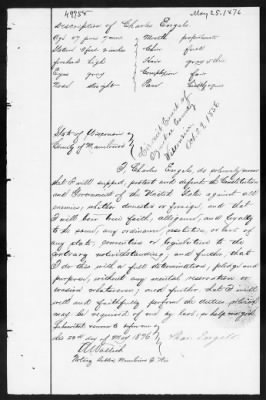 49758
May 25. 1876
Description of Charles Engels.
Age 47 years 7 mos Mouth proportionate
Stature 5 feet 2 inches Chin full
forehead high Hair gray & thin
Eyes gray Complexion fair
Nose straight Face
State of Wisconsin
County of Manitowoc
Circuit Court of
County
Wisconsin
Oct 29. 1856
I, Charles Engels, do solemnly swear
that I will support, protect and defend the Constitution
and Government of the United States against all
enemies, whether domestic or foreign, and that
I will bear true faith, allegiance, and loyalty
to the same, any ordinance, resolution, or law of
any state, convention or legislature to the
contrary notwithstanding, and further, that
I do this with a full determination, pledge and
purpose, without any mental reservation or
evasion whatsoever; and further, that I will
well and faithfully perform the duties, which
may be required of me by law, so help me god.
Subscribed & sworn to before me
this 20th day of May 1876 Chas. Engels.
Notary Public Manitowoc Co Wis